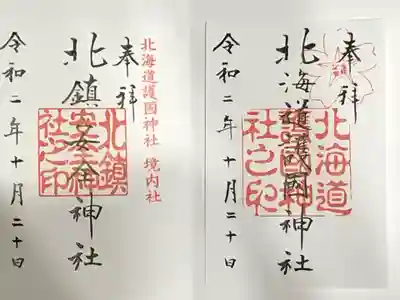 北海道護國神社 境内社
奉拝
北鎮安全神社
北鎮
安全神
社之印
令和二年十月二十日
奉拝
北海道護國神社
北海道
護國神
社之印
令和二年十月二十日